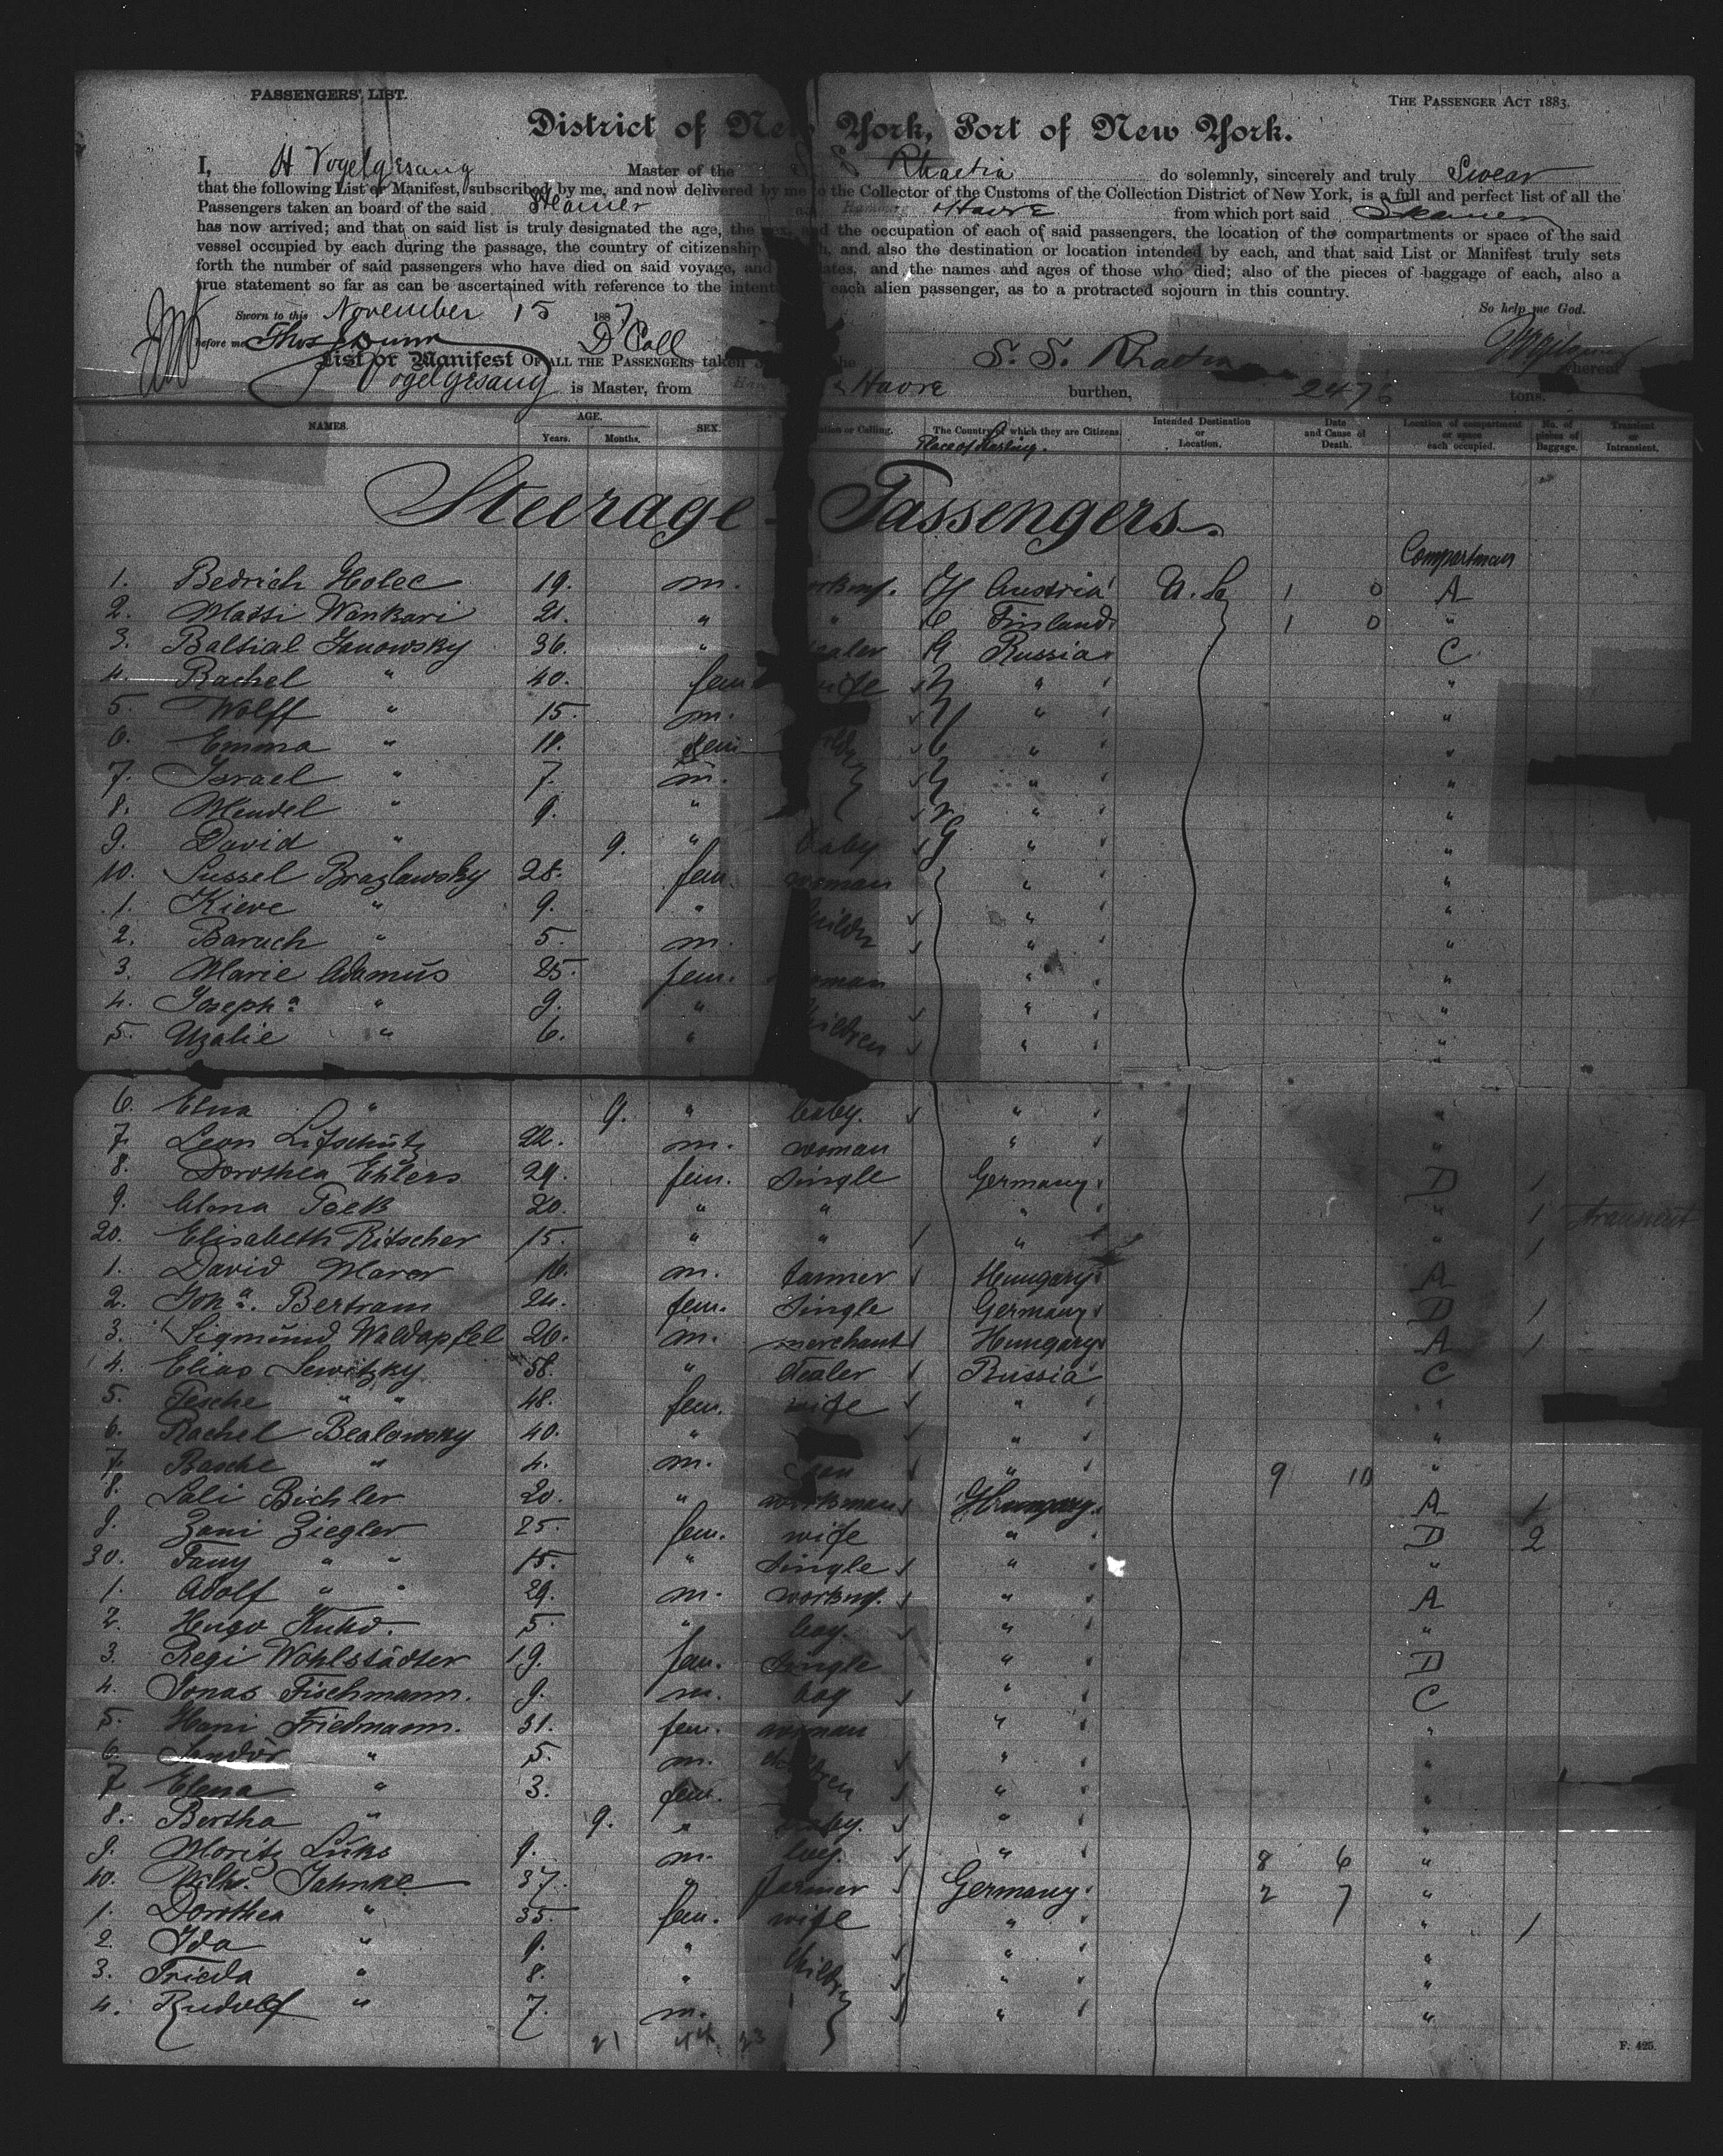 PASSENGERS' LIST.
THE PASSENGER ACT 1883.
District of New York, Port of New York.
I, H Vogelgesang Master of the S S Rhaetia do solemnly, sincerely and truly Swear
that the following List or Manifest, subscribed by me, and now delivered by me to the Collector of the Customs of the Collection District of New York, is a full and perfect list of all the
Passengers taken an board of the said Steamer Havre from which port said Steamer
has now arrived; and that on said list is truly designated the age, the sex, and the occupation of each of said passengers, the location of the compartments or space of the said
vessel occupied by each during the passage, the country of citizenship and also the destination or location intended by each, and that said List or Manifest truly sets
forth the number of said passengers who have died on said voyage, and dates, and the names and ages of those who died; also of the pieces of baggage of each, also a
true statement so far as can be ascertained with reference to the intent each alien passenger, as to a protracted sojourn in this country.
So help me God.
Sworn to this November 15 1887
before me Thos Dunn D Coll
List or Manifest OF ALL THE PASSENGERS taken the S. S. Rhaetia whereof
Vogelgesang is Master, from Havre burthen, 2476 tons.
NAMES. AGE. Years. Months. SEX. Calling. The Country of which they are Citizens. Intended Destination or Location. Date and Cause of Death. Location of compartment or space each occupied. No. of pieces of Baggage. Transient or Intransient.
Steerage Passengers.
Compartment
1. Bedrich Holec 19. m. Austria U. S. 1 0 A
2. Matti Wankari 21. " " Finland 1 0 "
3. Baltial Janowsky 36. " dealer Russia C
4. Rachel " 40. fem wife " "
5. Wolff " 15. m. " "
6. Emma " 11. fem " "
7. Israel " 7. m. " "
8. Mendel " 9. " " "
9. David " 9. " baby " "
10. Sussel Braslawsky 28. fem. woman " "
1. Kieve " 9. " childn " "
2. Baruch " 5. m. " "
3. Marie Adamus 25. fem. woman " "
4. Joseph a " 9. " " "
5. Uzalie " 6. " children " "
6. Elna " 9. " baby. " "
7. Leon Lifschutz 22. m. woman " "
8. Dorothea Ehlers 29. fem. single Germany D 1
9. Alma Peek 20. " " " " 1 transient
20. Elisabeth Ritscher 15. " " " " 1
1. David Marer 16. m. farmer Hungary A
2. Joha. Bertram 24. fem. single Germany D 1
3. Sigmund Waldapfel 26. m. merchant Hungary A 1
4. Elias Lewitzky 58. " dealer Russia C
5. Pesche " " 48. fem. wife " "
6. Rachel Bealowsky 40. " " "
7. Basche " 4. m. son " 9 10 "
8. Sali Bichler 20. " workman Hungary A 1
9. Zani Ziegler 25. fem. wife " D 2
30. Fany " " 15. " single " "
1. Adolf " " 29. m. workmn. " A
2. Hugo Kuhd. 5. " boy. " "
3. Regi Wohlstädter 19. fem. single " D
4. Jonas Fischmann. 9. m. boy " C
5. Hani Friedmann. 31. fem. woman " "
6. Sandor " 5. m. children " "
7. Elena " 3. fem. " "
8. Bertha " 9. " baby. " "
9. Moritz Luks 9. m. boy. " 8 6 "
40. Wilh. Jahnke 37. " farmer Germany 2 7 "
1. Dorothea " 35. fem. wife " " 1
2. Ida " 9. " childn " "
3. Frieda " 8. " " "
4. Rudolf " 7. m. " "
21 44 23
F. 425.